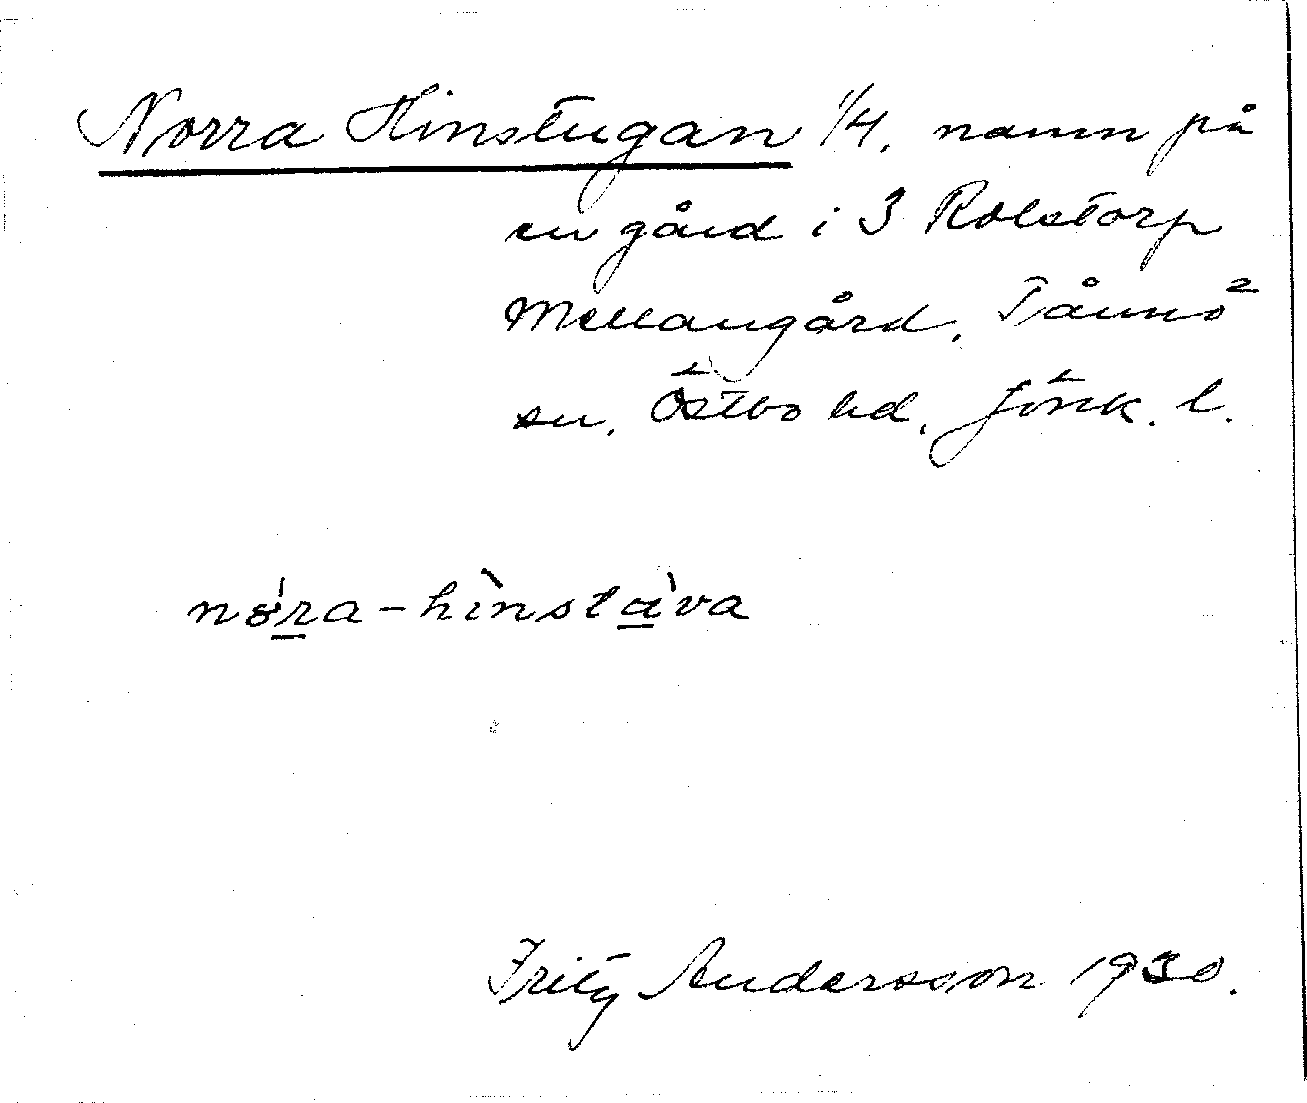 Norra Hinstugan 1/4, namn på
en gård i 3 Rolstorp
Mellangård, Tånnö
sn, Östbo hd, Jönk. l.
nớra-hìnstàva
Fritz Andersson 1930.